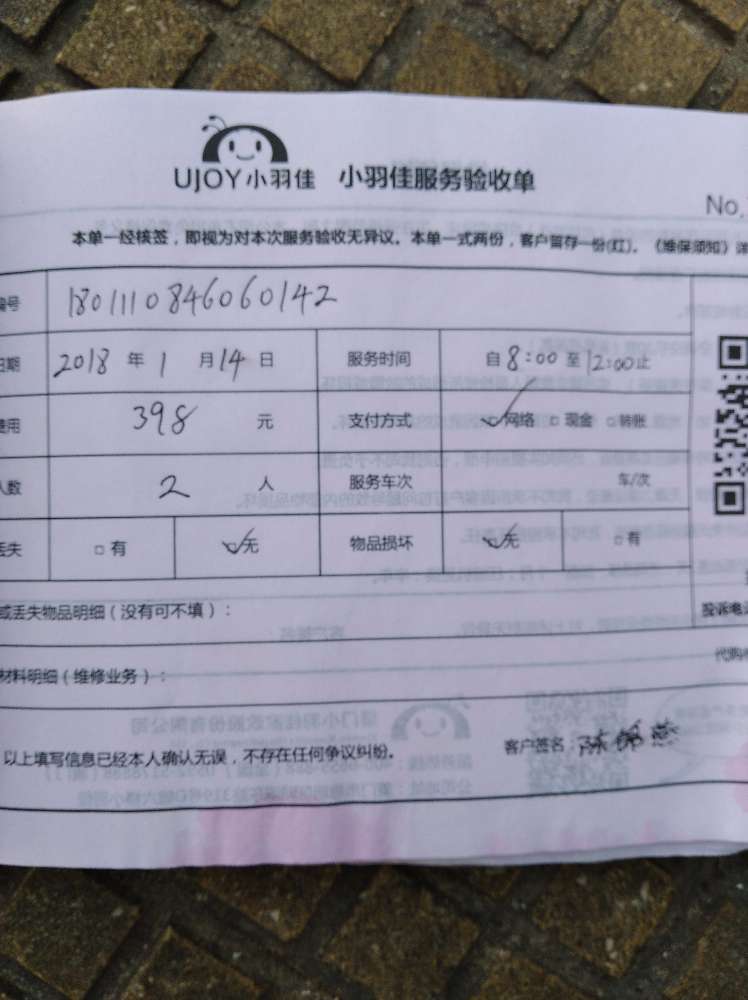 UJOY小羽佳 小羽佳服务验收单
No.
本单一经核签，即视为对本次服务验收无异议。本单一式两份，客户留存一份(红)。《维保须知》详
编号 180111084606014​2
日期 2018 年 1 月 14 日 服务时间 自 8:00 至 12:00 止
费用 398 元 支付方式 ☑网络 □现金 □转账
人数 2 人 服务车次 车/次
丢失 □有 ☑无 物品损坏 ☑无 □有
或丢失物品明细（没有可不填）：
投诉电
代购
材料明细（维修业务）：
以上填写信息已经本人确认无误，不存在任何争议纠纷。 客户签名：